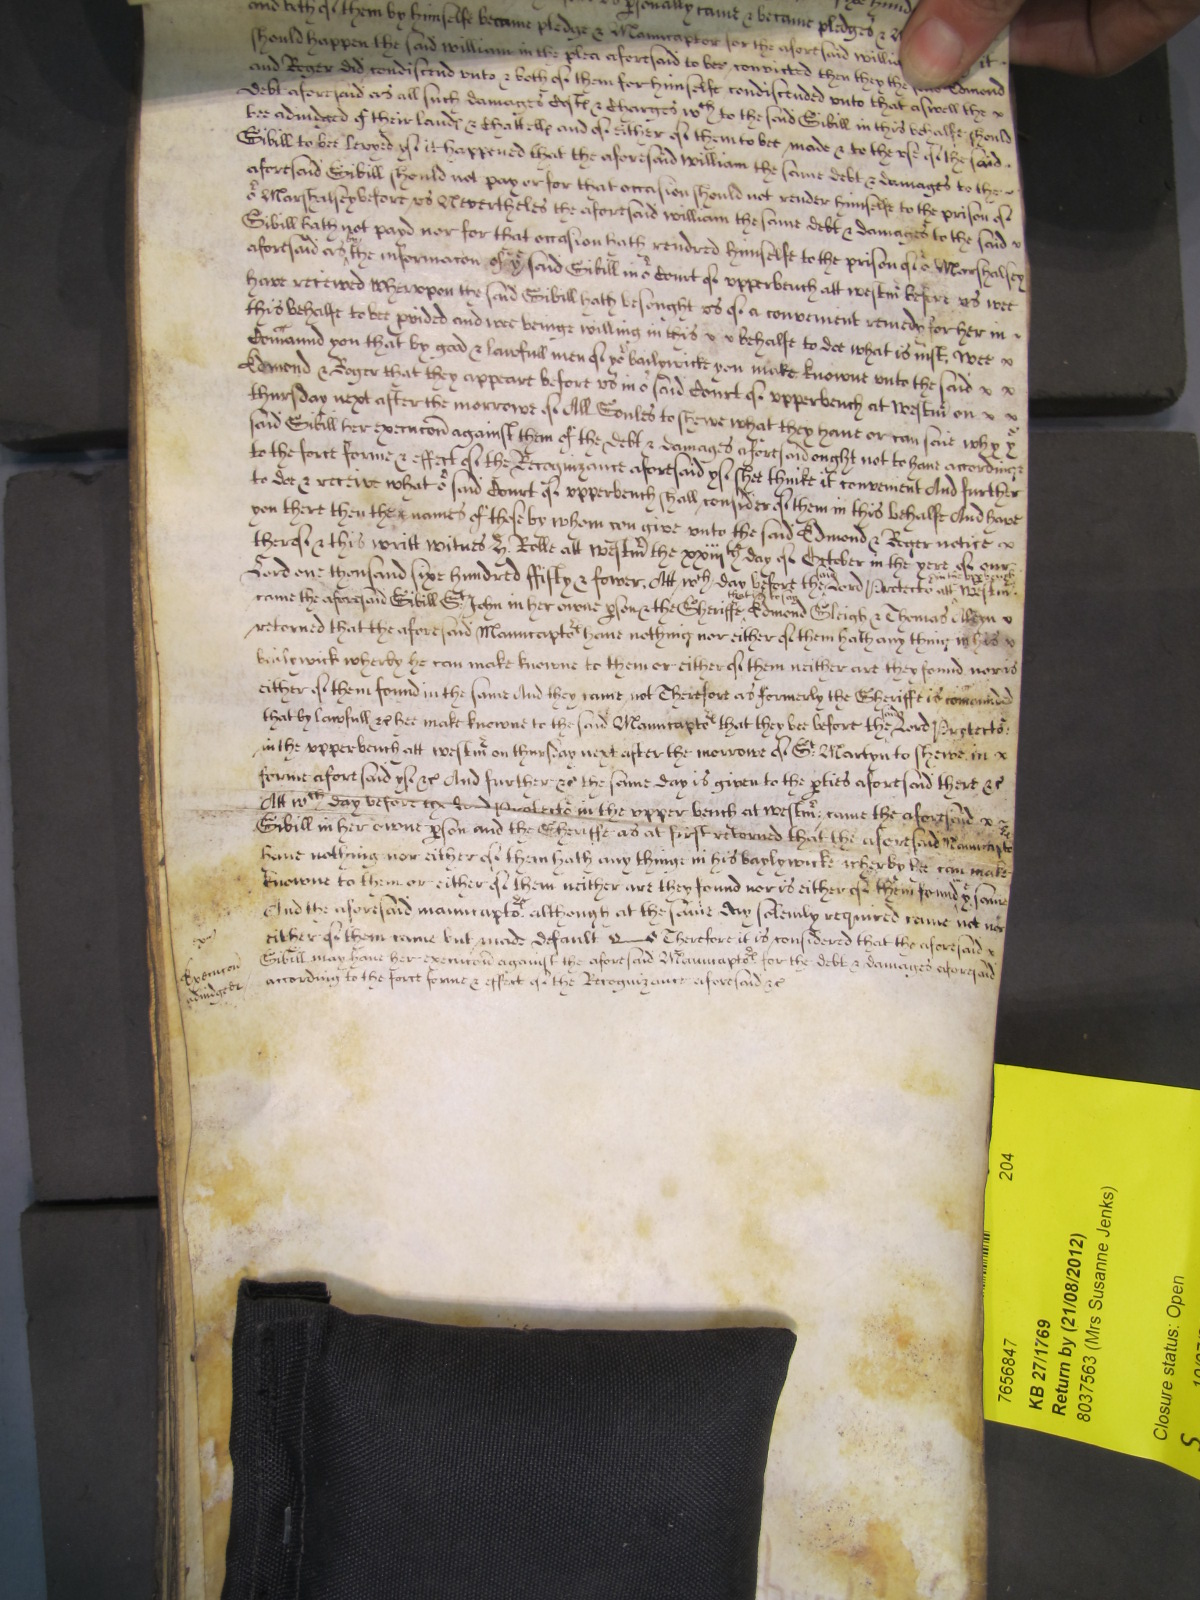 sonally came & became pledges &
and both of them by himselfe became pledge & Manucaptor for the aforesaid Willia it
should happen the said William in the plea aforesaid to bee convicted then they the said Edmond
and Roger did condiscend unto & both of them for himselfe condiscended unto that aswell the x
debt aforesaid as all such damages Costs & Charges wch to the said Sibill in this behalfe should
bee adiudged of their lands & Chattells and of either of them to bee made & to the use of the said
Sibill to bee levyed yf it happened that the aforesaid William the same debt & damages to the
aforesaid Sibill should not pay or for that occasion should not render himselfe to the prison of
or Marshalsey before us Nevertheles the aforesaid William the same debt & damages to the said x
Sibill hath not payd nor for that occasion hath rendred himselfe to the prison of or Marshalsey
aforesaid as by the informacon of ye said Sibill in or Court of upperbench att westm before us wee
have received wherupon the said Sibill hath besought us of a convenient remedy for her in
this behalfe to bee pvided and wee beinge willing in this x x behalfe to doe what is iust, Wee x
Comaund you that by good & lawfull men of yor bailywicke you make knowne unto the said x x
Edmond & Roger that they appeare before us in or said Court of upperbench at westm on x x
thursday next after the morrowe of All Soules to shewe what they have or can saie why ye
said Sibill her execucon against them of the debt & damages aforesaid ought not to have accordinge
to the force forme & effect of the Recognizance aforesaid yf shee thinke it convenient And further
to doe & receive what or said Court of upperbench shall consider of them in this behalfe And have
you there then the names of those by whom you give unto the said Edmond & Roger notice x
therof & this writt witnes H. Rolle att westm the xxiiith day of October in the yere of our
Lord one thousand sixe hundred ffifty & fower, Att wch day before the said Lord Protector in the upper bench att Westm
came the aforesaid Sibill St John in her owne pson & the Sheriffe that is to say Edmond Sleigh & Thomas x
returned that the aforesaid Manucaptors have nothing nor either of them hath any thing in his x
bailywick wherby he can make knowne to them or either of them neither are they found nor is
either of them found in the same And they came not Therefore as formerly the Sheriffe is comaunded
that by lawfull &c hee make knowne to the said Manucaptors that they bee before the said Lord Protector
in the upperbench att westm on thursday next after the morrowe of St Martyn to shewe in x
forme aforesaid yf &c And further &c the same day is given to the pties aforesaid there &c
Att wch day before the Lord Protector in the upper bench at westm: came the aforesaid x
Sibill in her owne pson and the Sheriffe as at first returned that the aforesaid Manucaptors
have nothing nor either of them hath any thinge in his baylywicke wherby hee can make
knowne to them or either of them neither are they found nor is either of them found in ye same
And the aforesaid manucaptors although at the same day solemly required came not nor
either of them came but made default Therefore it is considered that the aforesaid x
Execucon adiudged
Sibill may have her execucon against the aforesaid Manucaptors for the debt & damages aforesaid
according to the force forme & effect of the Recognizance aforesaid &c
204
7656847
KB 27/1769
Return by (21/08/2012)
8037563 (Mrs Susanne Jenks)
Closure status: Open
S